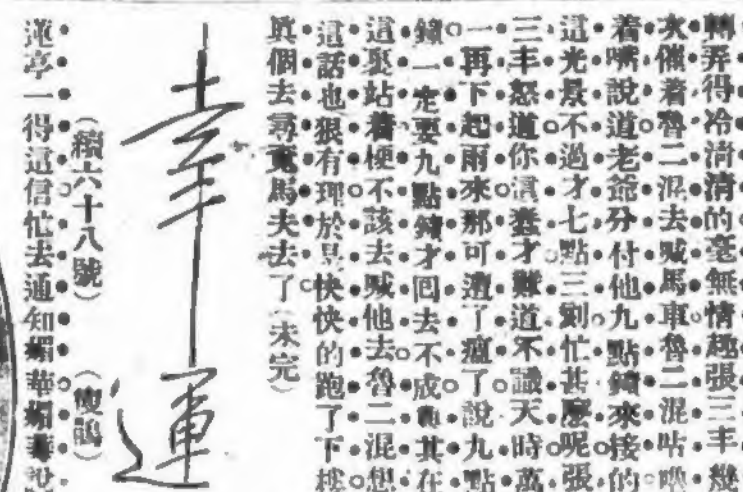 轉弄得冷淸淸的毫無情趣張三丰幾
次催着魯二混去喊馬車魯二混咕噥
着嘴說道老爺分付他九點鐘來接的
這光景不過才七點三刻忙甚麽呢張
三丰怒道你這蠢才難道不識天時萬
一再下起雨來那可遭了瘟了說九點
鐘一定要九點鐘才囘去不成其在
這裏站着梗不該去喊他去魯二混想
這話也狠有理於是快快的跑了下樓
眞個去尋覓馬夫去了（未完）
幸運
（續六十八號）（瘦鵑）
蓮亭一得這信忙去通知媚華媚華說